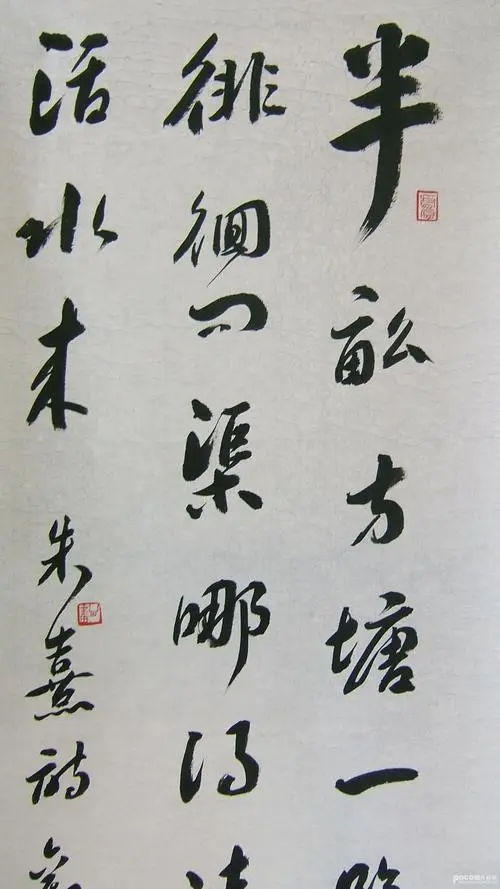 半畝方塘一
徘徊问渠哪得清
活水来
朱熹诗
poco